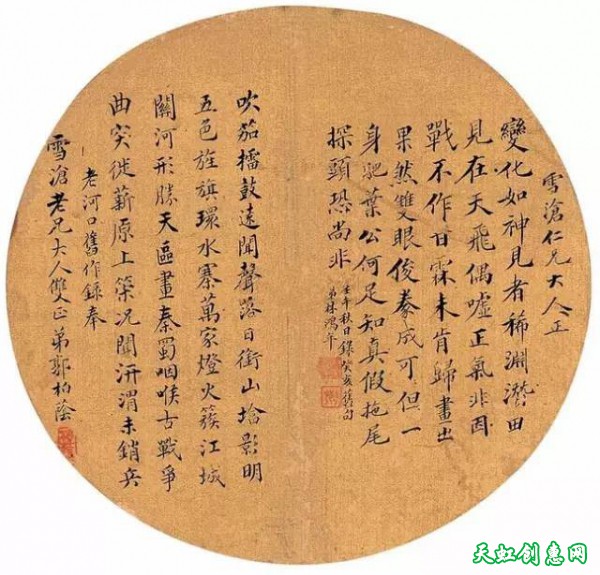 雪滄仁兄大人正
變化如神見者稀淵潛田
見在天飛偶噓正氣非因
戰不作甘霖未肯歸畫出
果然雙眼俊豢成可但一
身肥葉公何足知真假拖尾
探頭恐尚非
壬午秋日錄癸亥舊句
弟林鴻年
吹笳擂鼓遠聞聲落日銜山堵影明
五色旌旗環水寨萬家燈火簇江城
關河形勝天區畫秦蜀咽喉古戰爭
曲突徙薪原上策況聞汧渭未銷兵
老河口舊作錄奉
雪滄老兄大人雙正弟郭柏蔭
天虹创意网